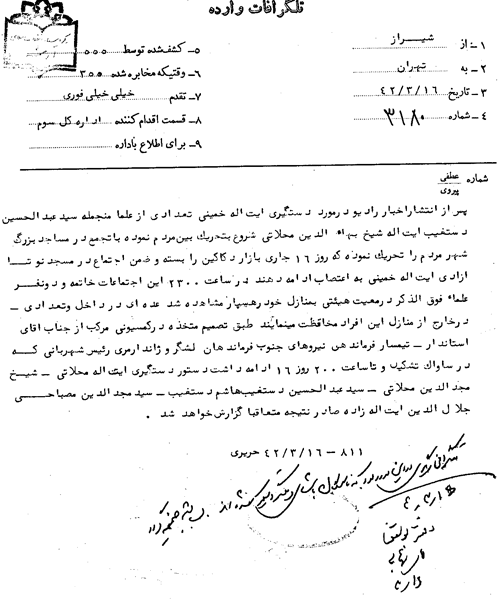 تلگرافات وارده
۱ـ از شیراز
۲ـ به تهران
۳ـ تاریخ ۴۲/۳/۱۶
۴ـ شماره ۳۱۸۰
۵ـ کشف شده توسط ۵۵۵
۶ـ وقتیکه مخابره شده ۳۵۵
۷ـ تقدم خیلی خیلی فوری
۸ـ قسمت اقدام کننده اداره کل سوم
۹ـ برای اطلاع باداره
شماره عطفی
پیروی
پس از انتشار اخبار رادیو در مورد دستگیری ایت اله خمینی تعدادی از علما منجمله سید عبدالحسین
دستغیب ایت اله شیخ بهاء الدین محلاتی شروع بتحریک بین مردم نموده با تجمع در مساجد بزرگ
شهر مردم را تحریک نموده که روز ۱۶ جاری بازار دکاکین را بسته و ضمن اجتماع در مسجد نو تا
ازادی ایت اله خمینی به اعتصاب ادامه دهند در ساعت ۲۳۰۰ این اجتماعات خاتمه و دو نفر
علماء فوق الذکر در معیت هیئتی بمنازل خود رهسپار مشاهده شد عده ای در داخل و تعدادی ـ
در خارج از منازل این افراد محافظت مینمایند طبق تصمیم متخذه در کمسیونی مرکب از جناب اقای
استاندار ـ تیمسار فرماندهی نیروهای جنوب فرماندهان لشگر و ژاندارمری رئیس شهربانی که
در ساواک تشکیل و تا ساعت ۲۰۰ روز ۱۶ ادامه داشت دستور دستگیری ایت اله محلاتی ـ شیخ
مجد الدین محلاتی ـ سید عبدالحسین دستغیب هاشم دستغیب ـ سید مجد الدین مصباحی
جلال الدین ایت اله زاده صادر نتیجه متعاقبا گزارش خواهد شد .
۸۱۱ - ۴۲/۳/۱۶ حریری